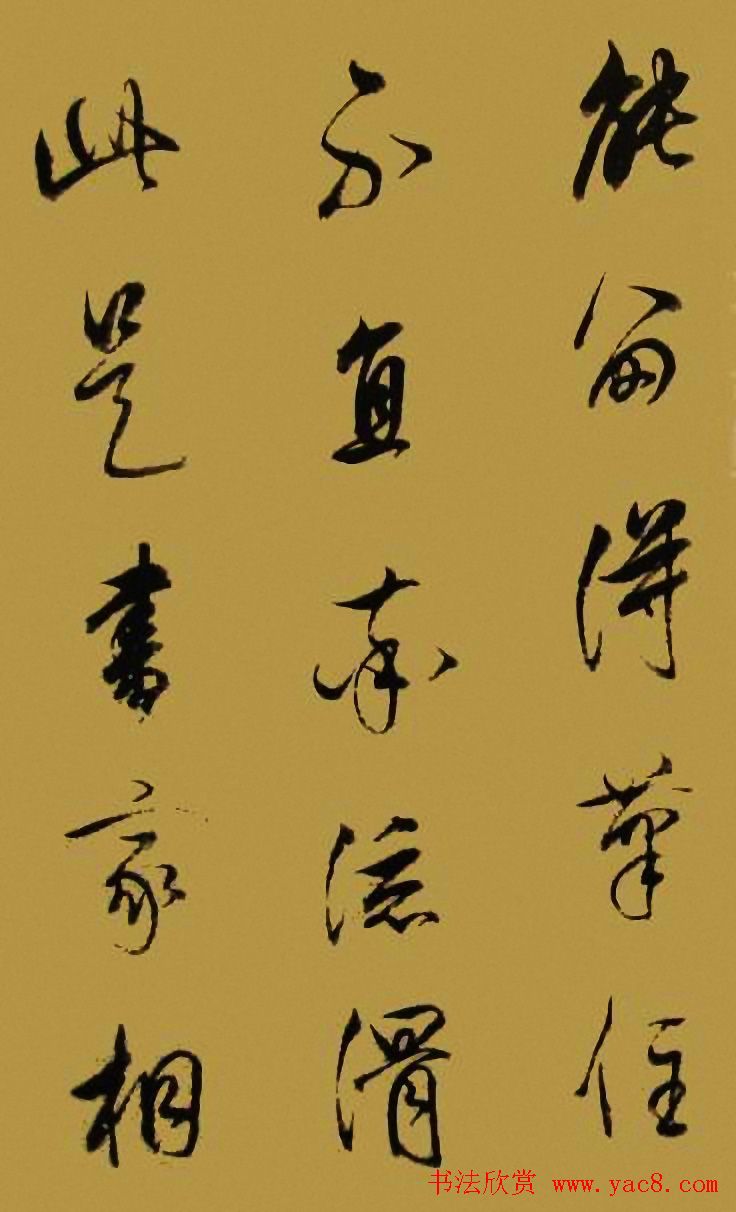 能留得筆住
不直率流滑
此是書家相
书法欣赏 www.yac8.com